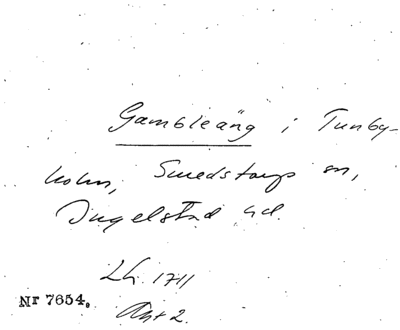 Gambleäng i Tunby-
holm, Smedstorps sn,
Ingelstad hd.
Lh. 1711
Akt 2.
Nr 7654.